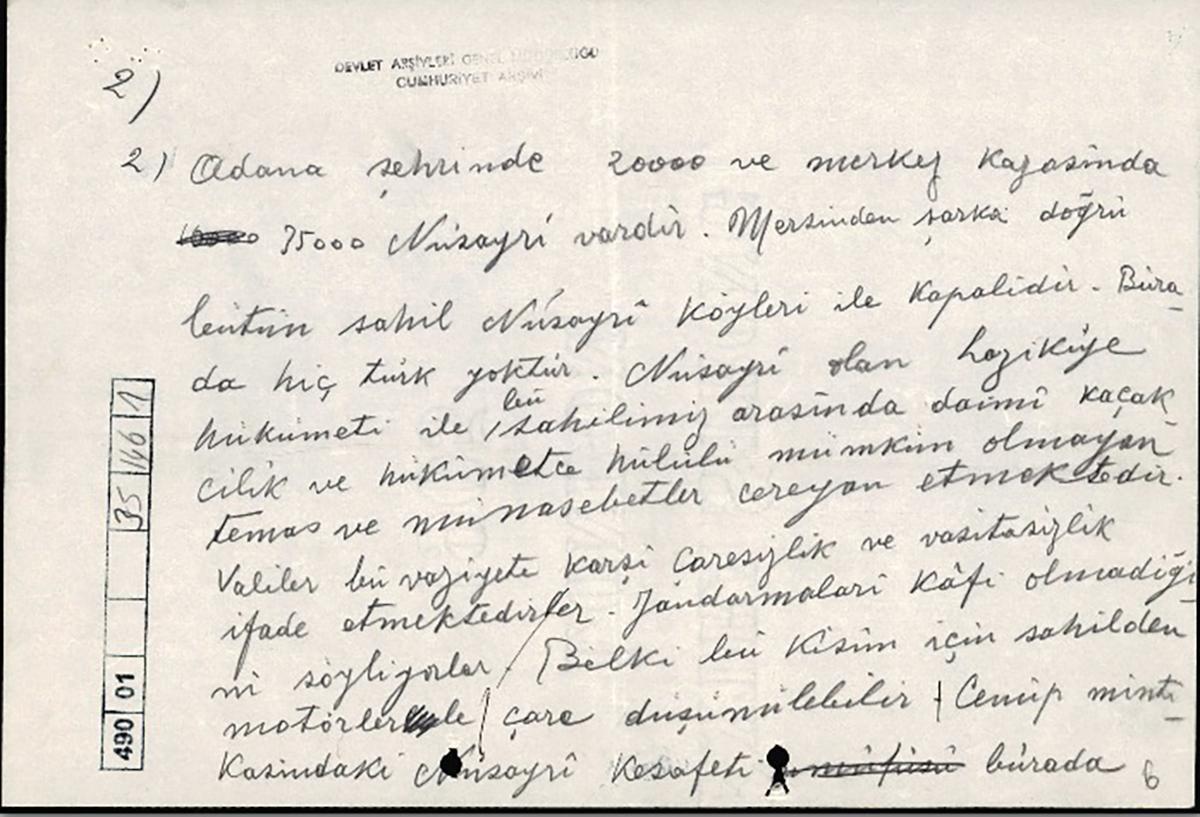 DEVLET ARŞİVLERİ GENEL MÜDÜRLÜĞÜ
CUMHURİYET ARŞİVİ
2)
2) Adana şehrinde 20000 ve merkez kazasinda
75000 Nusayrî vardir. Mersinden şarka doğru
bütün sahil Nusayrî köyleri ile kapalidir. Bura-
da hiç türk yoktur. Nusayrî olan lazikiye
hükûmeti ile bu sahilimiz arasinda daimî kaçak
cilik ve hükûmetce hulûlü mümkün olmayan
temas ve münasebetler cereyan etmektedir.
Valiler bu vaziyete karşi caresizlik ve vasitasizlik
ifade etmektedirler. Jandarmalari kâfi olmadiği
ni söyliyorlar. Belki bu kisim için sahilden
motörlerle çare düşünülebilir. Cenup minta-
kasindaki Nusayrî kesafeti nüfusu burada
6
490 01 35 146 1